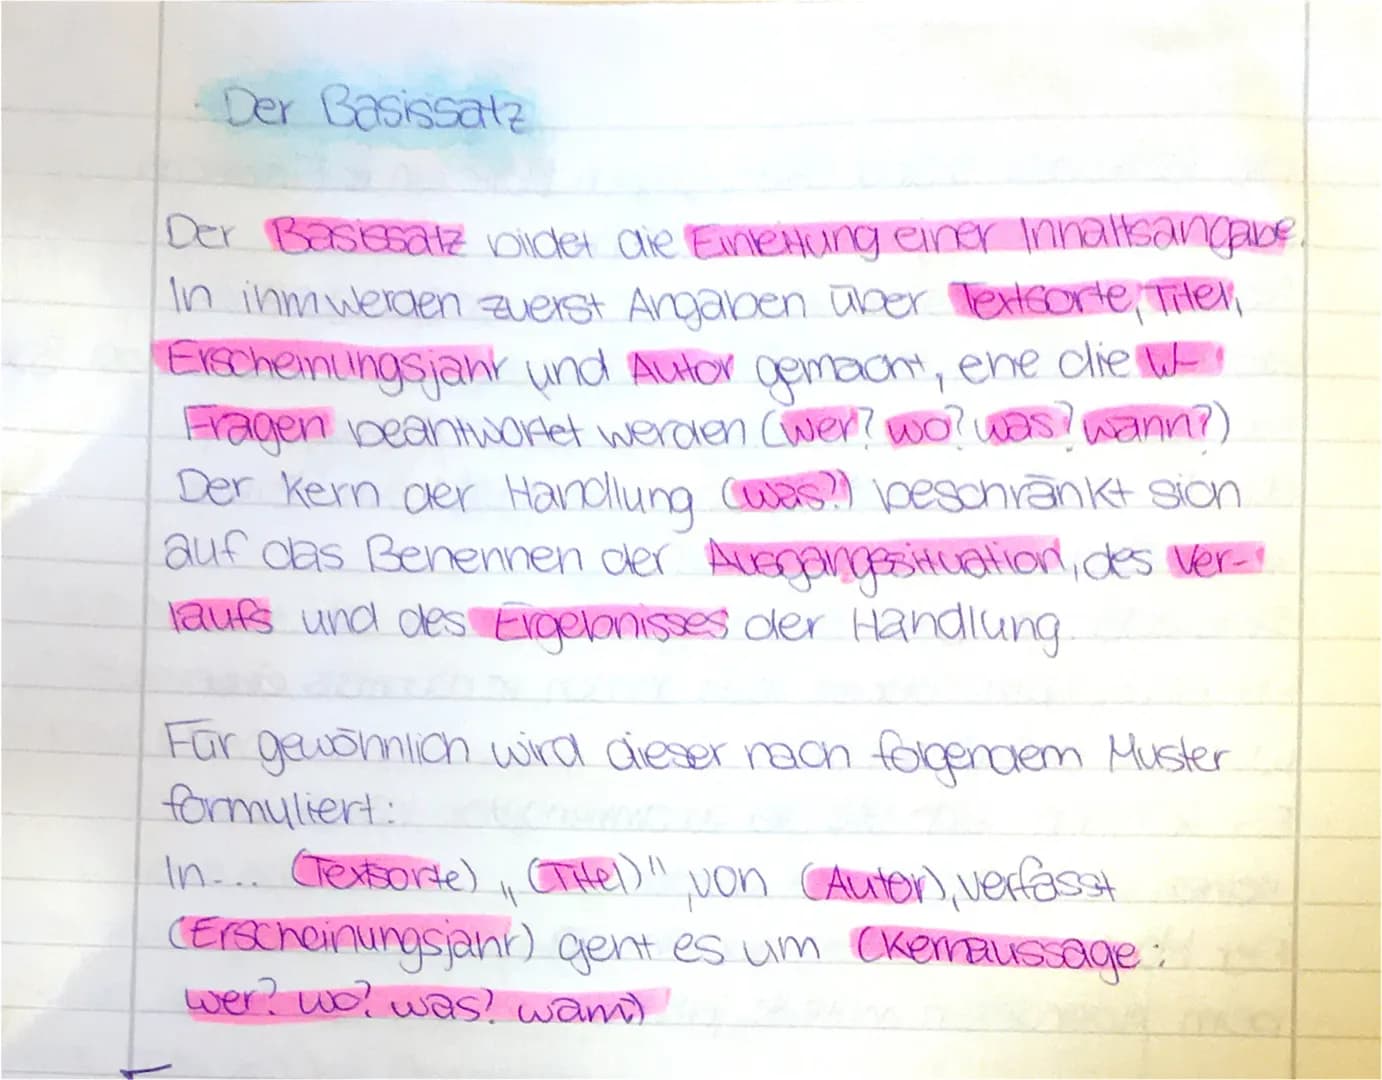 Der Basissatz
Der Basissatz bildet die Einleitung einer Inhaltsangabe.
In ihm werden zuerst Angaben über Textsorte, Titel,
Erscheinungsjahr und Autor gemacht, ehe die W-
Fragen beantwortet werden (wer? wo? was? wann?)
Der Kern der Handlung (was?) beschränkt sich
auf das Benennen der Ausgangssituation, des Ver-
laufs und des Ergebnisses der Handlung
Für gewöhnlich wird dieser nach folgendem Muster
formuliert:
In... (Textsorte) „(Titel)", von (Autor), verfasst
(Erscheinungsjahr) geht es um (Kernaussage:
wer? wo? was? wann)